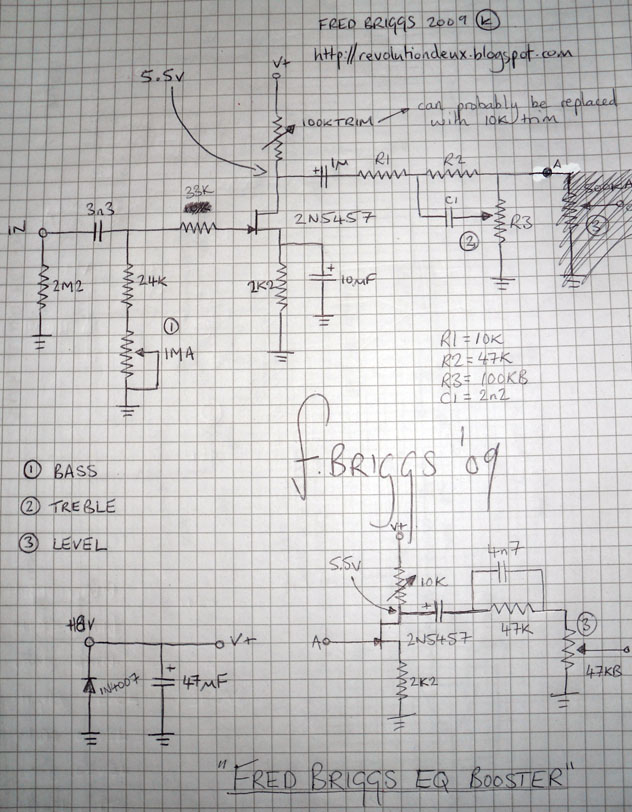 FRED BRIGGS 2009 K
http://revolutiondeux.blogspot.com
V+
5.5v
100K TRIM
can probably be replaced
with 10K trim
+ 1µ
R1
R2
A
33K
3n3
IN
2N5457
C1
②
R3
③
2M2
24K
2K2
+
10µF
①
1MA
R1 = 10K
R2 = 47K
R3 = 100KB
C1 = 2n2
f. BRIGGS '09
① BASS
② TREBLE
③ LEVEL
V+
5.5V
10K
4n7
+
A
2N5457
47K
③
47KB
2K2
V+
+
1N4007
47µF
"FRED BRIGGS EQ BOOSTER"